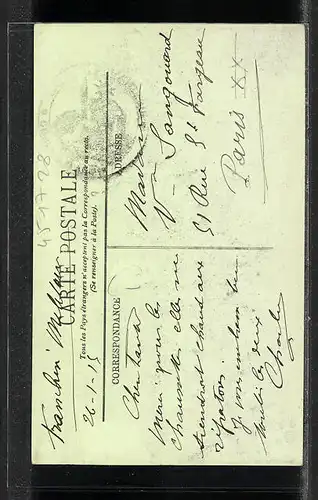 451728
CARTE POSTALE
Tous les Pays étrangers n'acceptent pas la Correspondance au recto.
(Se renseigner à la Poste).
CORRESPONDANCE
ADRESSE
26-1-15
Merci pour les
chaussettes elles me
tiendront chaud aux
Je vous embrasse bien
toutes les deux
Charles
Madame
51 Rue St Fargeau
Paris XX